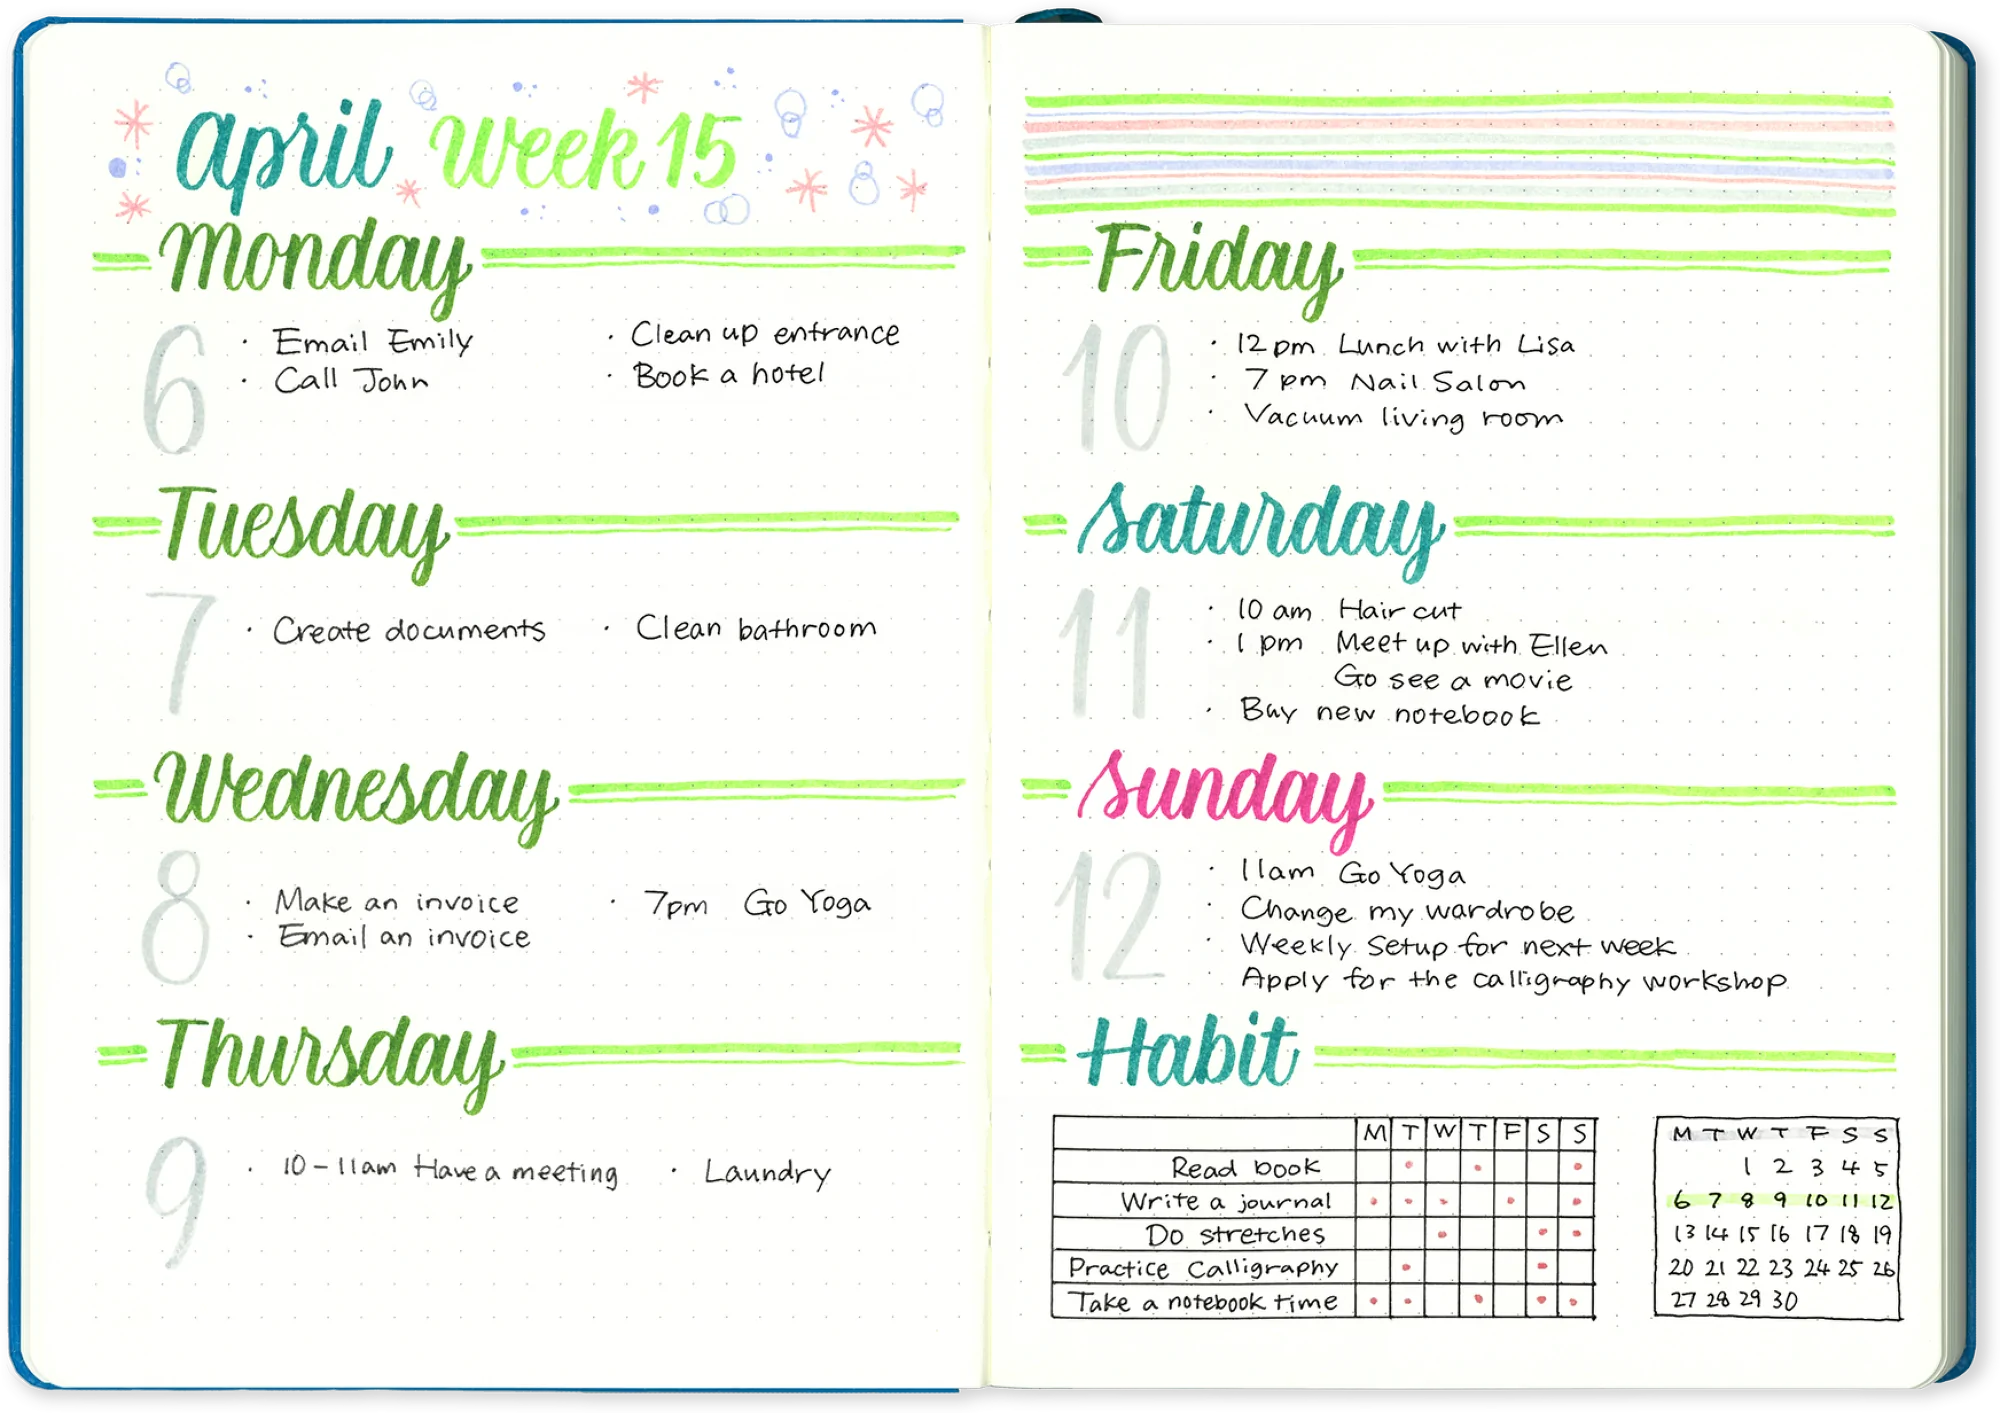 April Week 15
Monday
6
· Email Emily
· Call John
· Clean up entrance
· Book a hotel
Tuesday
7
· Create documents
· Clean bathroom
Wednesday
8
· Make an invoice
· Email an invoice
· 7pm Go Yoga
Thursday
9
· 10-11am Have a meeting
· Laundry
Friday
10
· 12pm Lunch with Lisa
· 7pm Nail Salon
· Vacuum living room
Saturday
11
· 10 am Hair cut
· 1 pm Meet up with Ellen
Go see a movie
· Buy new notebook
Sunday
12
· 11am Go Yoga
· Change my wardrobe
· Weekly Setup for next week
· Apply for the calligraphy workshop
Habit
M T W T F S S
Read book
Write a journal
Do stretches
Practice Calligraphy
Take a notebook time
M T W T F S S
1 2 3 4 5
6 7 8 9 10 11 12
13 14 15 16 17 18 19
20 21 22 23 24 25 26
27 28 29 30